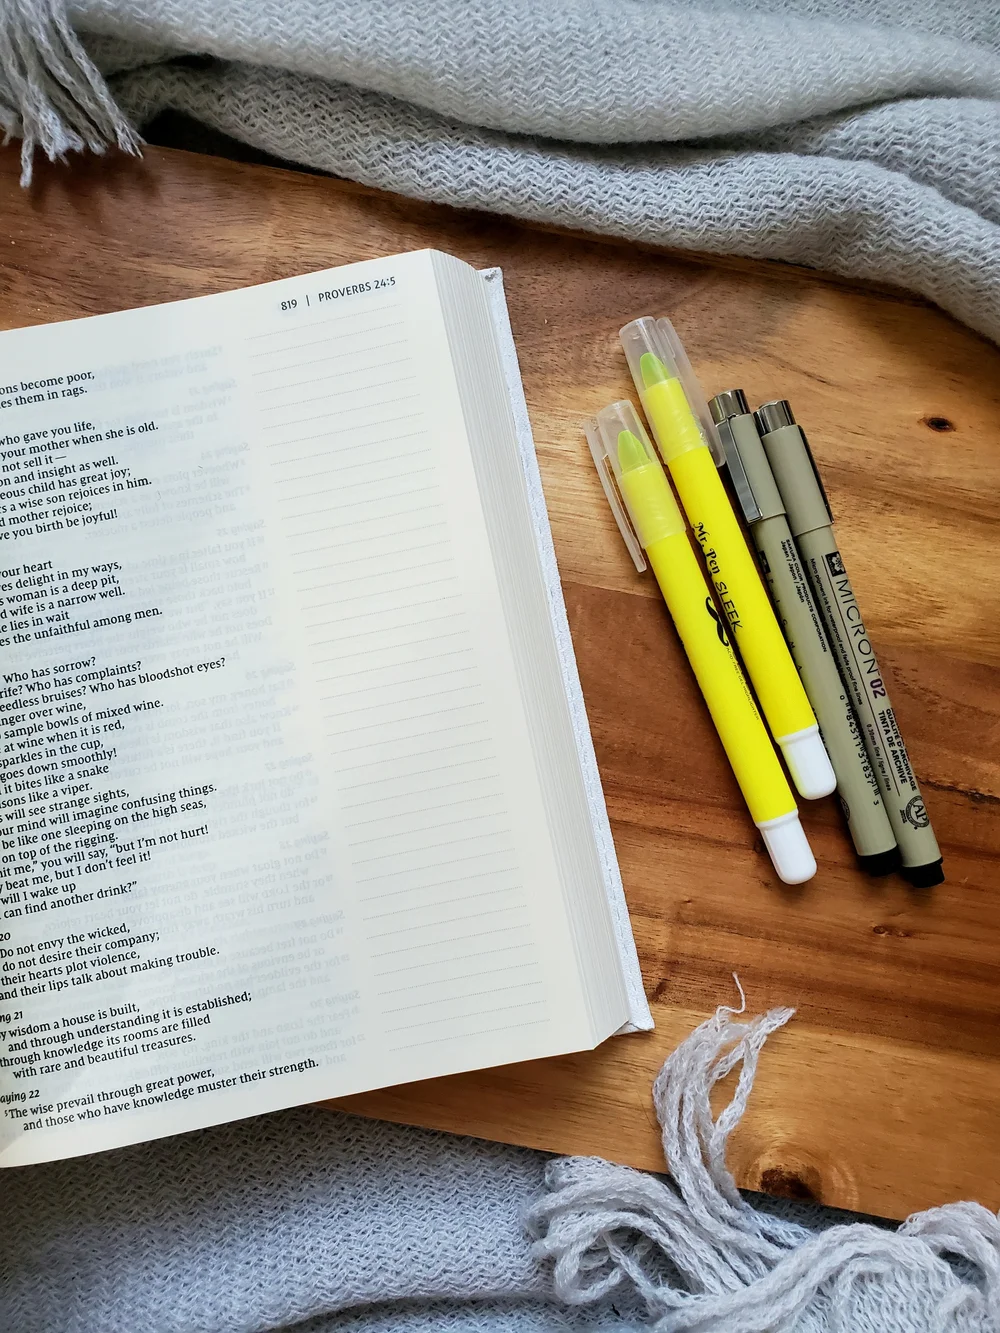 819 | PROVERBS 24:5
ons become poor,
es them in rags.
who gave you life,
your mother when she is old.
not sell it —
on and insight as well.
eous child has great joy;
rs a wise son rejoices in him.
d mother rejoice;
ve you birth be joyful!
your heart
es delight in my ways,
s woman is a deep pit,
d wife is a narrow well.
e lies in wait
es the unfaithful among men.
Who has sorrow?
rife? Who has complaints?
eedless bruises? Who has bloodshot eyes?
nger over wine,
o sample bowls of mixed wine.
e at wine when it is red,
sparkles in the cup,
goes down smoothly!
it bites like a snake
isons like a viper.
s will see strange sights,
our mind will imagine confusing things.
be like one sleeping on the high seas,
on top of the rigging.
hit me," you will say, "but I'm not hurt!
y beat me, but I don't feel it!
will I wake up
can find another drink?"
20
Do not envy the wicked,
do not desire their company;
their hearts plot violence,
and their lips talk about making trouble.
ng 21
y wisdom a house is built,
and through understanding it is established;
through knowledge its rooms are filled
with rare and beautiful treasures.
aying 22
5The wise prevail through great power,
and those who have knowledge muster their strength.
Mr. Pen SLEEK
SAKURA COLOR PRODUCTS CORPORATION
Japan / Japon / Japón
MICRON 02
QUALITÉ D'ARCHIVAGE
TINTA DE ARCHIVE
AP